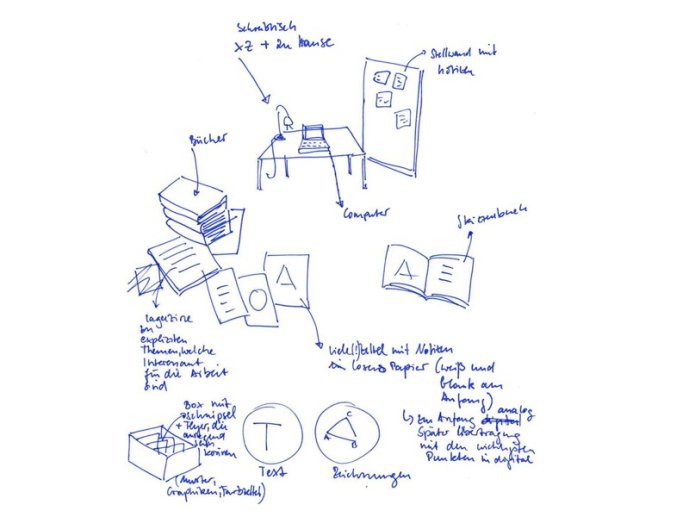 Schreibtisch
XZ + zu Hause
Stellwand mit
Notizen
Bücher
Computer
Skizzenbuch
A
A
O
Magazine
explizite
Themen, welche
Interessant
für die Arbeit
sind
viele(!) Zettel mit Notizen
Papier (weiß und
blank am
Anfang)
↳ Am Anfang analog
Später Übertragung
mit den wichtigsten
Punkten in digital
Box mit
+ Flyer, die
anregend
sein
können
(Muster,
Graphiken, Farbzettel)
T
Text
A B C
Zeichnungen